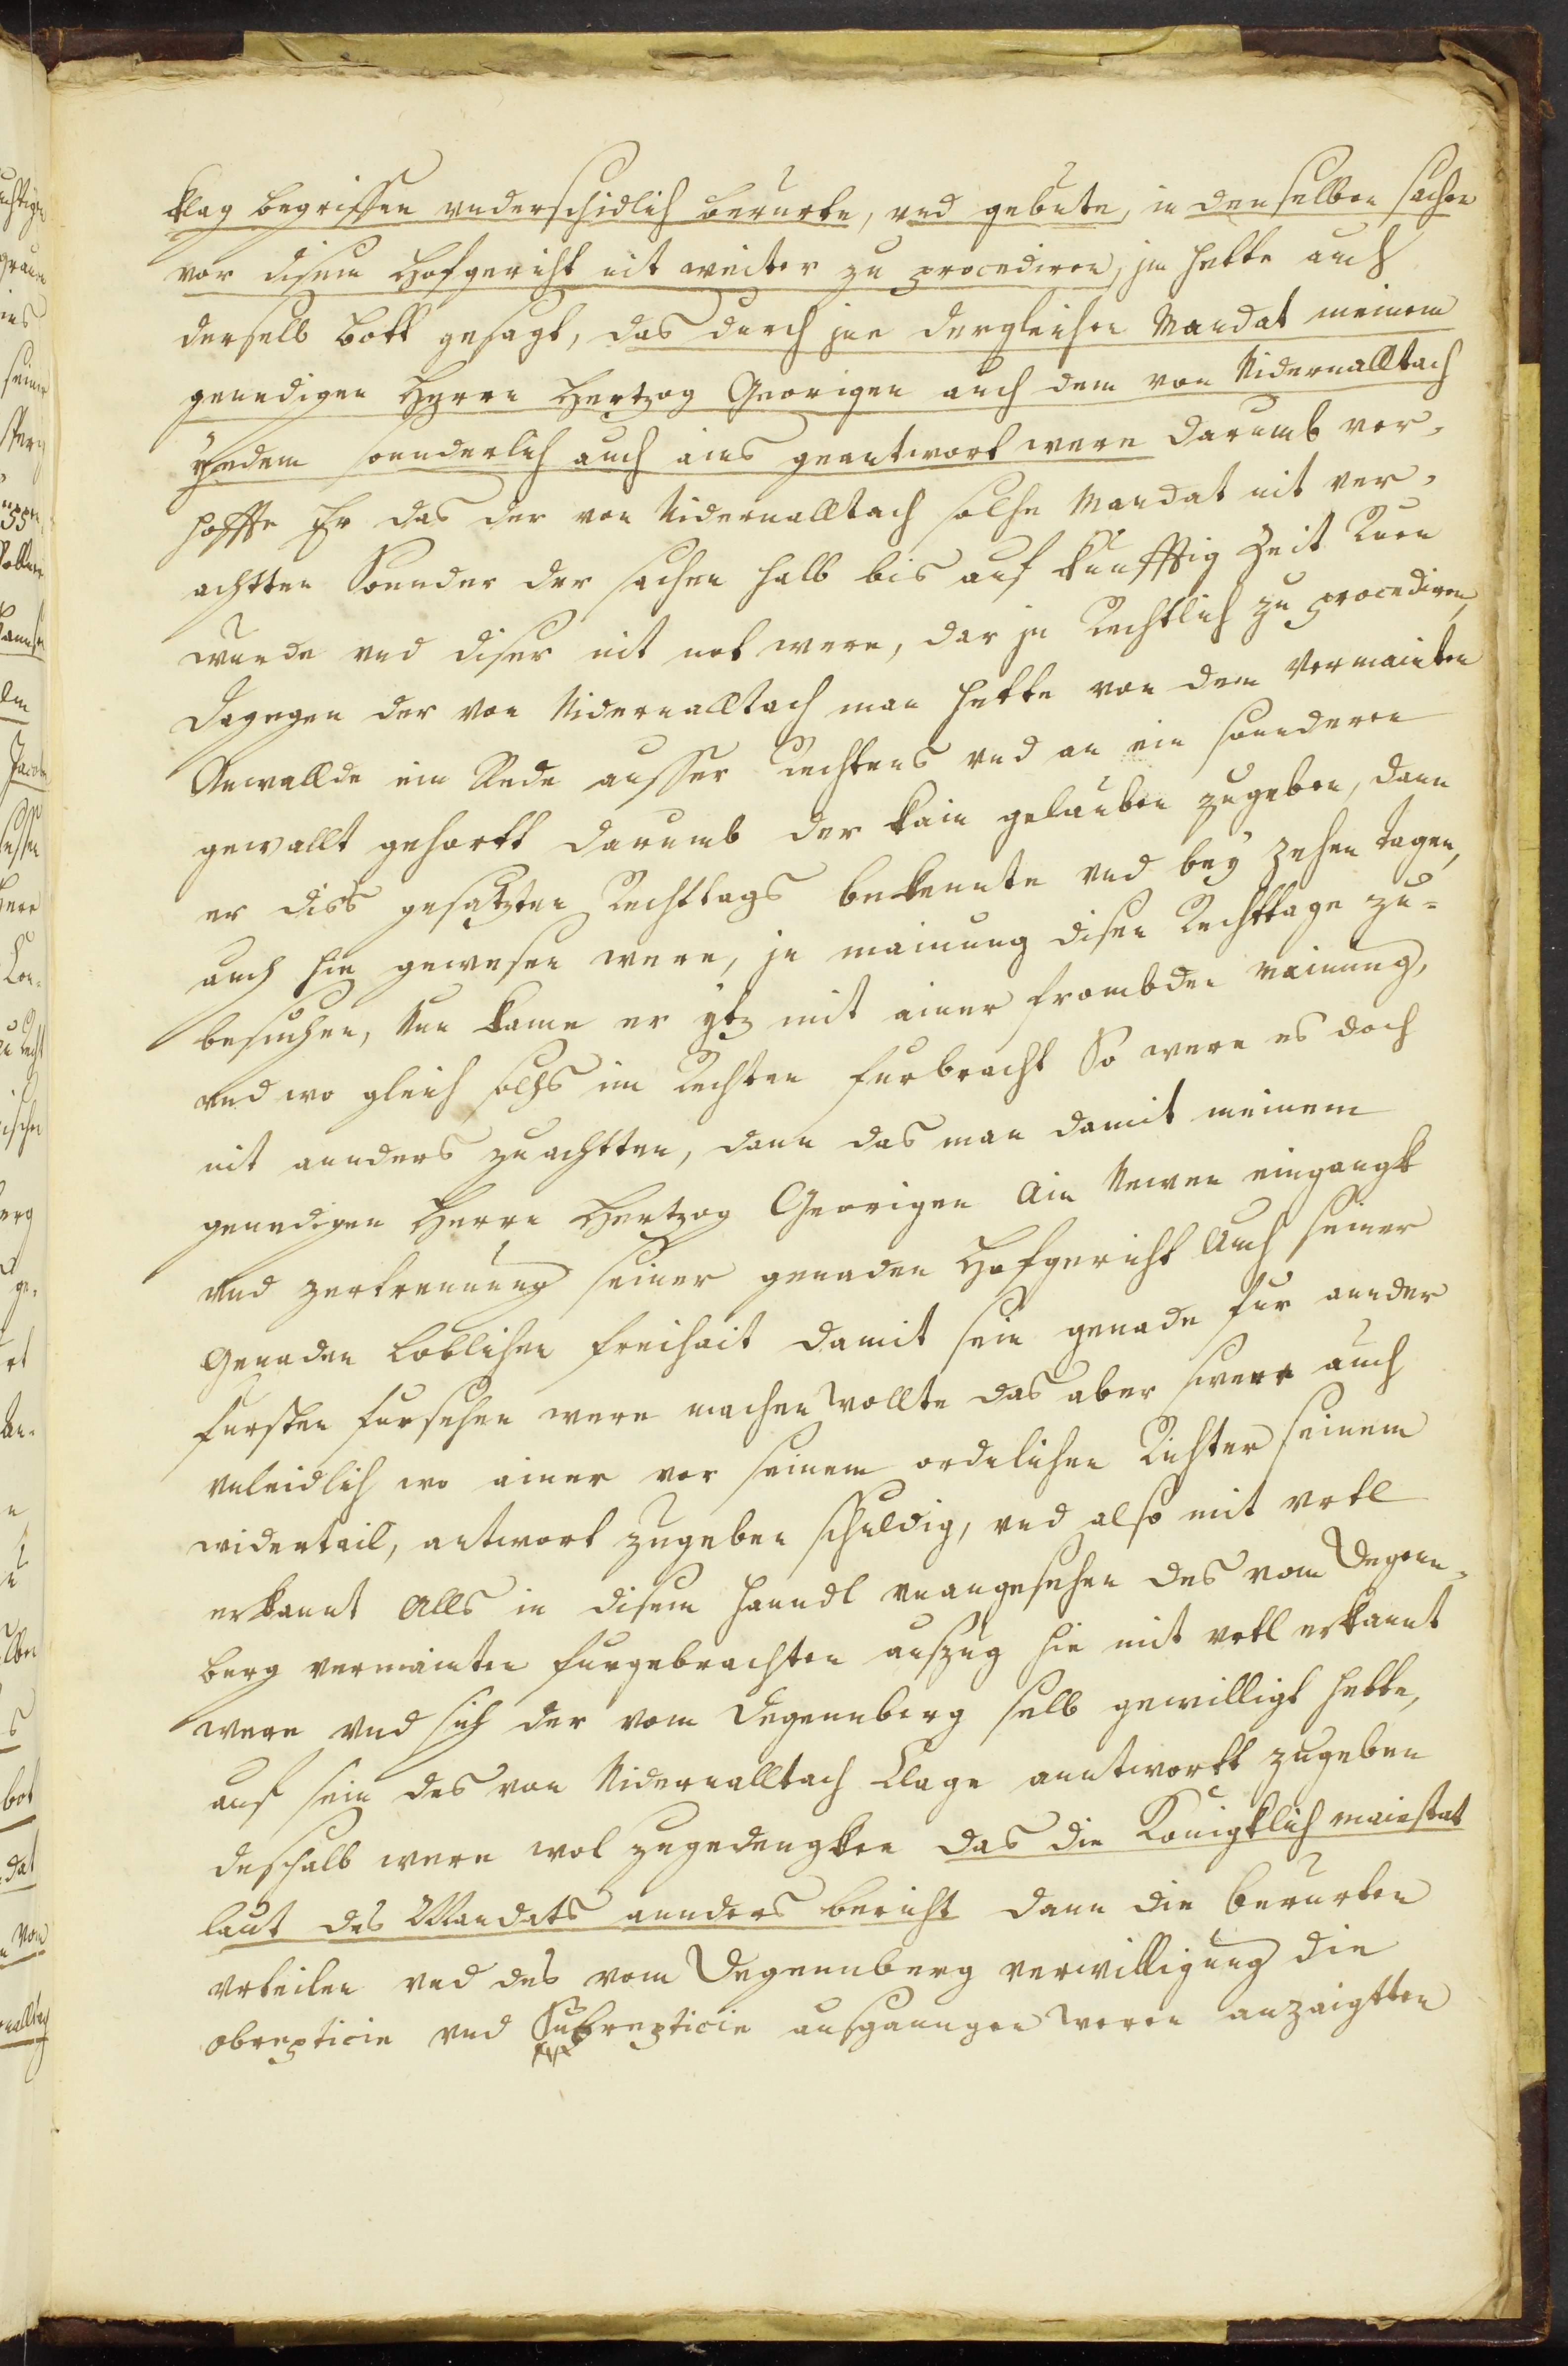 klag begriffen vnderschidlich berurte, vnd gebute, in denselben sachen
vor disem Hofgericht nit weiter zu procediren, jm hette auch
derselb bott gesagt, das durch jne dergleichen Mandat meinem
genedigen Herrn Hertzog Georigen auch dem von Nidernalltach
yedem sonnderlich auch ains geantwort were darumb ver-
hoffte Er das der von Nidernalltach solhe Mandat nit ver-
achtten Sonnder der sachen halb bis auf kunfftig Zeit Ruen
wurde vnd diser nit not were, dar jn Rechtlich zu procediren,
Dagegen der von Nidernalltach man hette von dem Vermainten
Anwallde ein Rede ausser Rechtens vnd an ein sonnderen
gewallt gehortt darumb der kain gelauben zugeben, dann
er diss gesatzten Rechttags bekennte vnd bey zehen tagen,
auch hie gewesen were, jn mainung disen Rechttage zu-
besuchen, Nun kame er ytz mit ainer frombden mainung,
vnd wo gleich solhs im Rechten furbracht So were es doch
nit annders zuachtten, dann das man damit meinem
genedigen Herrn Hertzog Georigen Ain Newen eingangk
vnd zertrennung seiner genaden Hofgericht Auch seiner
Genaden loblichen freihait damit sein genade fur annder
fursten fursehen were machen wollte das aber swere auch
vnleidlich wo ainer vor seinem ordelichen Richter seinem
widertail, antwort zugeben schuldig, vnd also mit vrtl
erkannt Alls in disem hanndl vnangesehen des vom Degenn-
berg vermainten furgebrachten auszug hie mit vrtl erkannt
were vnd sich der vom Degennberg selb gewilligt hette,
auf sein des von Nidernalltach Clage anntwortt zugeben
deshalb were wol zugedengkhen das die Konigklich maiestat
laut des Mandats annders bericht dann die berurten
vrteilen vnd des vom Degennberg verwilligung die
obrepticie vnd Subrepticie ausganngen weren anzaigtten